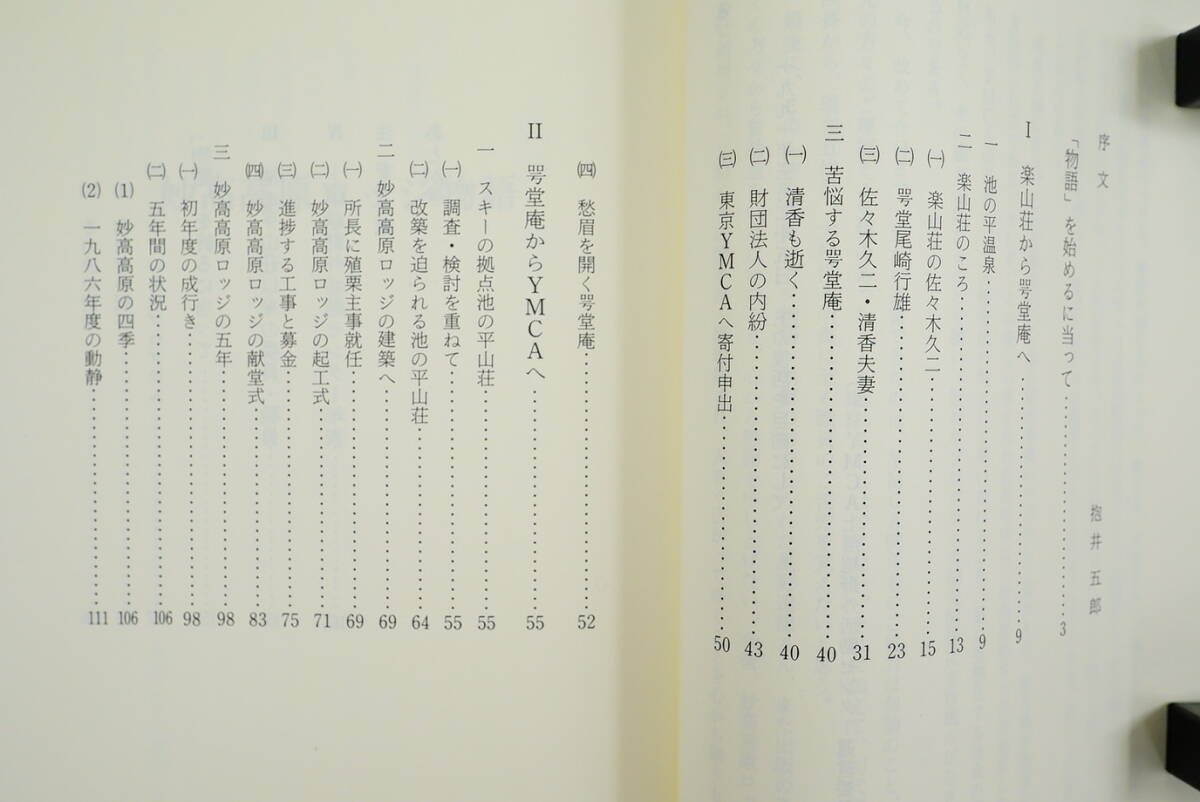 序文 抱井五郎
「物語」を始めるに当って…………3
Ⅰ 楽山荘から咢堂庵へ…………9
一 池の平温泉…………9
二 楽山荘のころ…………13
㈠ 楽山荘の佐々木久二…………15
㈡ 咢堂尾崎行雄…………23
㈢ 佐々木久二・清香夫妻…………31
三 苦悩する咢堂庵…………40
㈠ 清香も逝く…………40
㈡ 財団法人の内紛…………43
㈢ 東京YMCAへ寄付申出…………50
㈣ 愁眉を開く咢堂庵…………52
Ⅱ 咢堂庵からYMCAへ…………55
一 スキーの拠点池の平山荘…………55
㈠ 調査・検討を重ねて…………55
㈡ 改築を迫られる池の平山荘…………64
二 妙高高原ロッジの建築へ…………69
㈠ 所長に殖栗主事就任…………69
㈡ 妙高高原ロッジの起工式…………71
㈢ 進捗する工事と募金…………75
㈣ 妙高高原ロッジの献堂式…………83
三 妙高高原ロッジの五年…………98
㈠ 初年度の成行き…………98
㈡ 五年間の状況…………106
⑴ 妙高高原の四季…………106
⑵ 一九八六年度の動静…………111